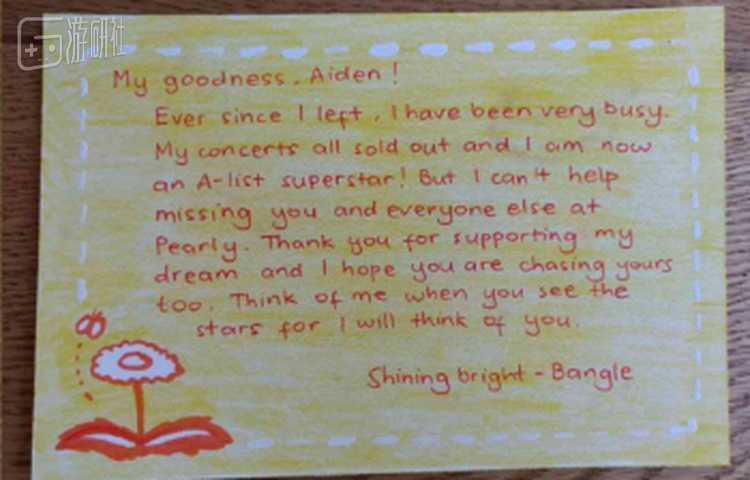 游研社
My goodness, Aiden!
Ever since I left, I have been very busy.
My concerts all sold out and I am now
an A-list superstar! But I can't help
missing you and everyone else at
Pearly. Thank you for supporting my
dream and I hope you are chasing yours
too. Think of me when you see the
stars for I will think of you.
Shining bright - Bangle